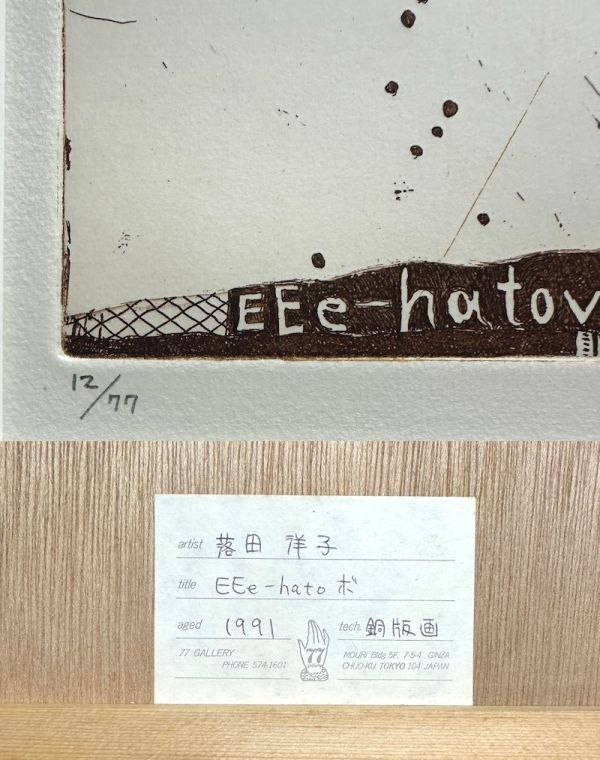 EEe-hatov
12/77
artist 落田 洋子
title EEe-hato ボ
aged 1991 tech. 銅版画
77 GALLERY
PHONE 574-1601
77
MOURI Bldg. 5F, 7-5-4 GINZA
CHUO-KU TOKYO 104 JAPAN